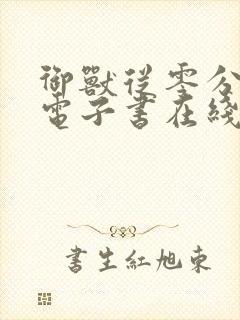 御獸從零分
電子書在綫
書生紅旭東